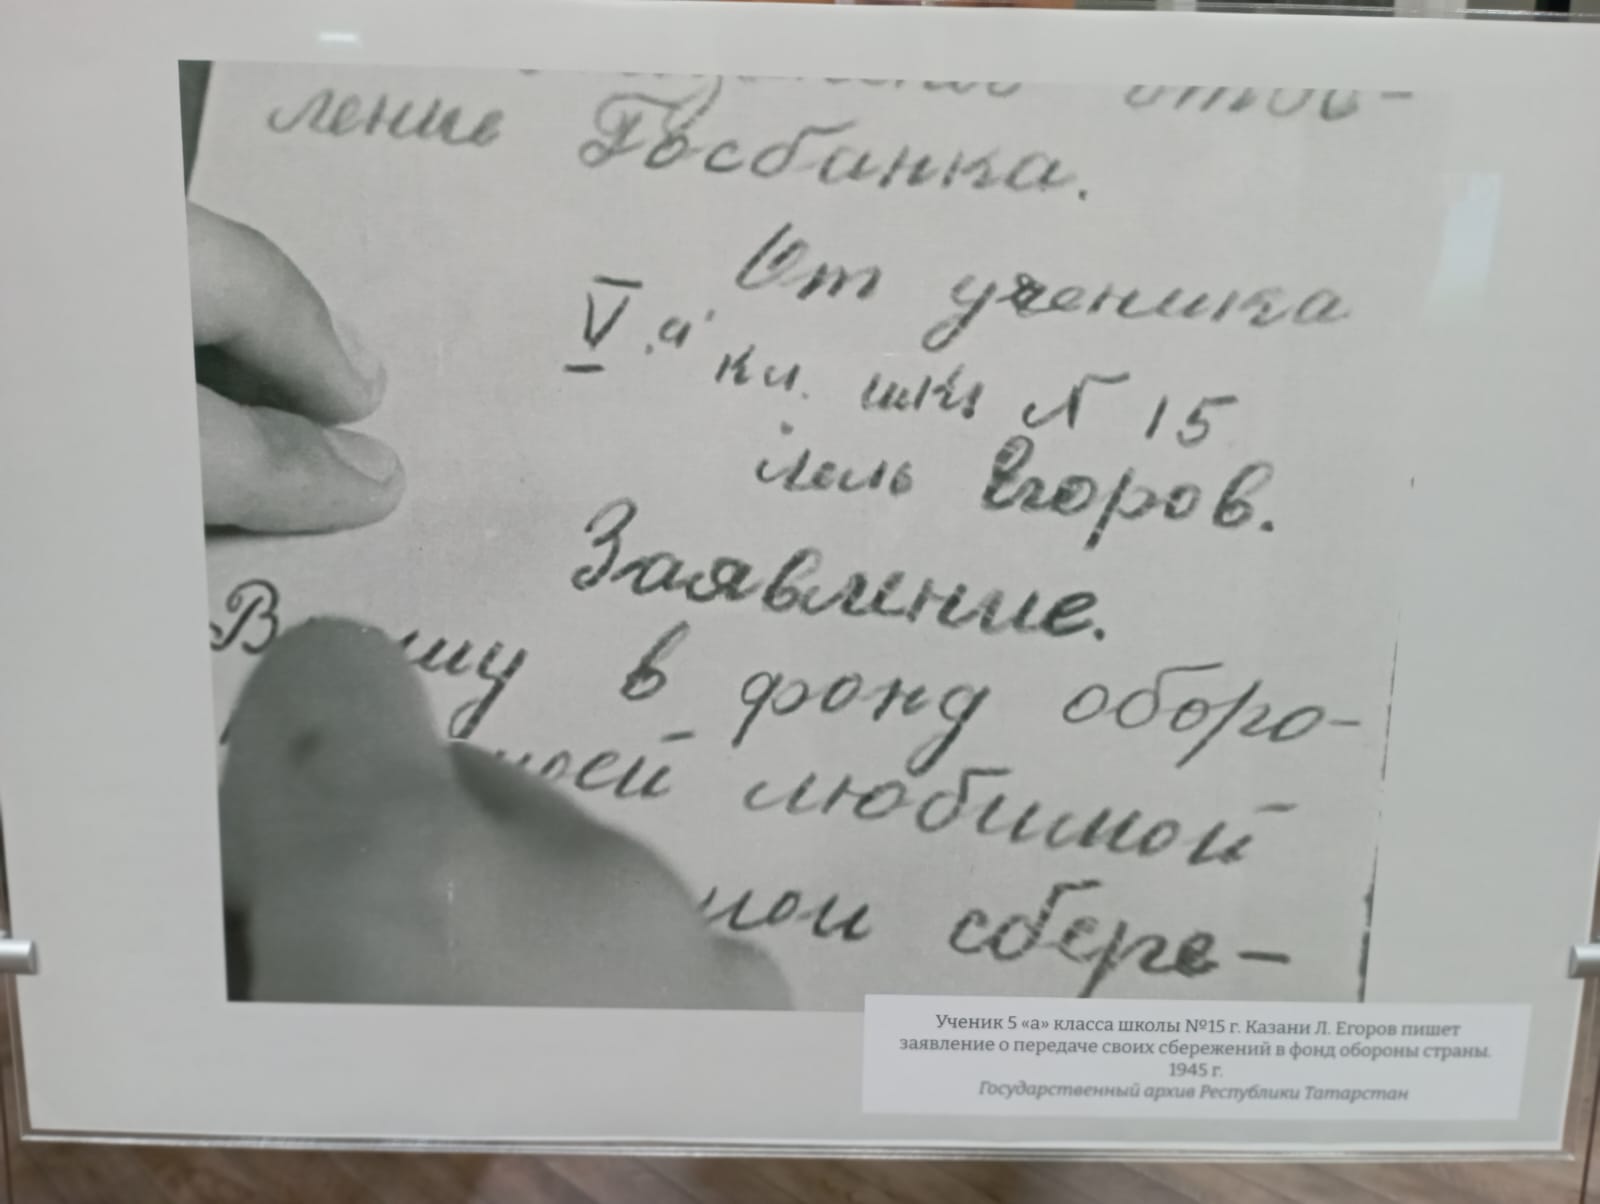 ление Госбанка.
От ученика
V "а" кл. шк. N 15
Лель Егоров.
Заявление.
в фонд оборо-
любимой
сбере-
Ученик 5 «а» класса школы №15 г. Казани Л. Егоров пишет
заявление о передаче своих сбережений в фонд обороны страны.
1945 г.
Государственный архив Республики Татарстан